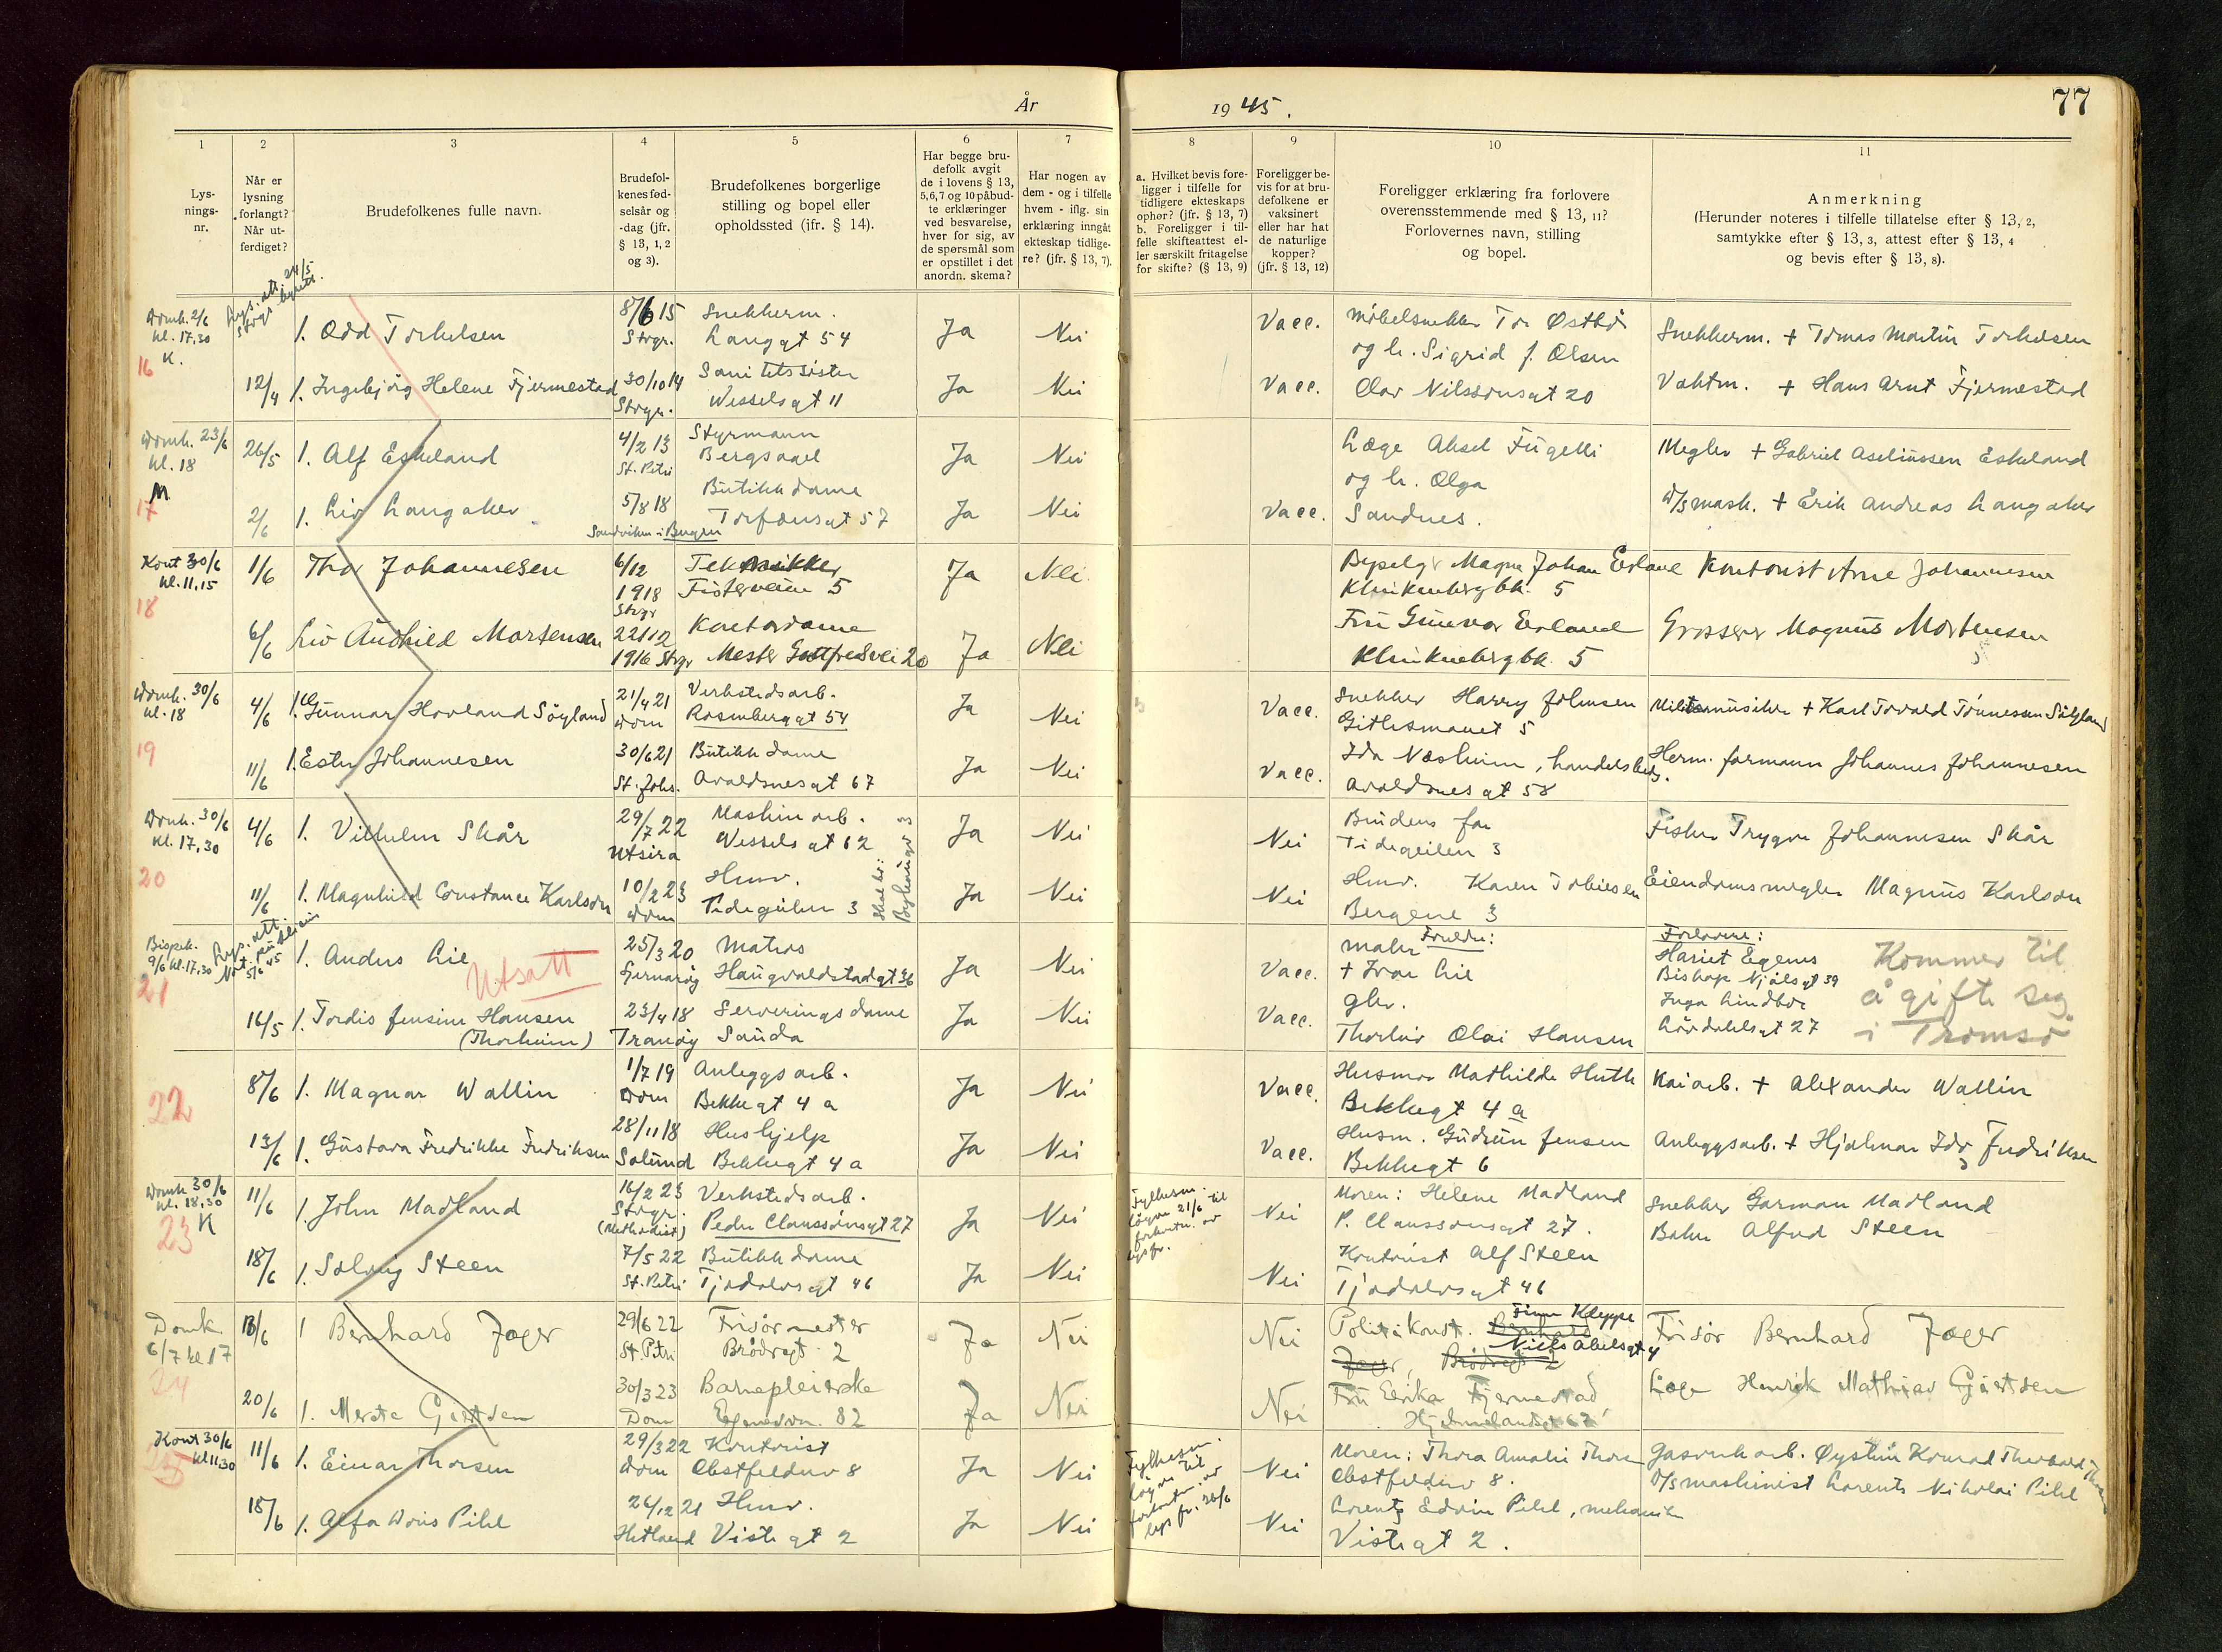 År
1945.
77
1
2
3
4
5
6
7
8
9
10
11
Lys-
nings-
nr.
Når er
lysning
forlangt?
Når ut-
ferdiget?
Brudefolkenes fulle navn.
Brudefol-
kenes fød-
selsår og
-dag (jfr.
§ 13, 1, 2
og 3).
Brudefolkenes borgerlige
stilling og bopel eller
opholdssted (jfr. § 14).
Har begge bru-
defolk avgit
de i lovens § 13,
5,6,7 og 10 påbud-
te erklæringer
ved besvarelse,
hver for sig, av
de spørsmål som
er opstillet i det
anordn. skema?
Har nogen av
dem - og i tilfelle
hvem - iflg. sin
erklæring inngåt
ekteskap tidlige-
re? (jfr. § 13, 7).
a. Hvilket bevis fore-
ligger i tilfelle for
tidligere ekteskaps
ophør? (jfr. § 13, 7)
b. Foreligger i til-
felle skifteattest el-
ler særskilt fritagelse
for skifte? (§ 13, 9)
Foreligger be-
vis for at bru-
defolkene er
vaksinert
eller har hat
de naturlige
kopper?
(jfr. § 13, 12)
Foreligger erklæring fra forlovere
overensstemmende med § 13, 11?
Forlovernes navn, stilling
og bopel.
Anmerkning
(Herunder noteres i tilfelle tillatelse efter § 13, 2,
samtykke efter § 13, 3, attest efter § 13, 4
og bevis efter § 13, 8).
Domk. 2/6
kl. 17,30
K.
16
Lys. att. 24/5
1. Odd Torkelsen
8/6 15
Stvgr.
Snekkerm.
Langgt 54
Ja
Nei
Vacc.
Møbelsnekker Tor Østbø
og h. Sigrid f. Olsen
Snekkerm. + Tomas Martin Torkelsen
12/4
1. Ingebjörg Helene Fjermestad
30/10 14
Stvgr.
Sanitetssister
Wesselsgt 11
Ja
Nei
Vacc.
Olav Nilssønsgt 20
Vaktm. + Hans Arnt Fjermestad
Domk. 23/6
kl. 18
M
17
26/5
1. Alf Eskeland
4/2 13
St. Petri
Styrmann
Bergsagel
Ja
Nei
Læge Aksel Fugelli
og h. Olga
Megler + Gabriel Aseliussen Eskeland
2/6
1. Liv Langaker
5/8 18
Sandviken i Bergen
Butikkdame
Torfæusgt 57
Ja
Nei
Vacc.
Sandnes.
D/S mask. + Erik Andreas Langaker
Kont 30/6
kl. 11,15
18
1/6
Thor Johannesen
6/12
1918
Stvgr
Tekniker
Fisterveien 5
Ja
Nei
Magne Johan Erland
Klinkenbergbk. 5
Kontorist Arne Johannesen
6/6
Liv Audhild Mortensen
22/12
1916 Stvgr
Kontordame
Mester Gottfredsvei 20
Ja
Nei
Fru Gunvor Erland
Klinkenbergbk. 5
Grosserer Magnus Mortensen
Domk. 30/6
kl. 18
19
4/6
1. Gunnar Hovland Söyland
21/4 21
Dom
Verkstedsarb.
Rosenberggt 54
Ja
Nei
Vacc.
Snekker Harry Johnsen
Gitlesmauet 5
Militærmusiker + Karl Torvald Tönnesen Söyland
11/6
1. Ester Johannesen
30/6 21
St. Johs.
Butikkdame
Avaldsnesgt 67
Ja
Nei
Vacc.
Ida Næsheim, handelsbetj.
Avaldsnesgt 58
Herm. formann Johannes Johannesen
Domk. 30/6
kl. 17,30
20
4/6
1. Vilhelm Skår
29/7 22
Utsira
Maskinarb.
Wesselsgt 62
Ja
Nei
Nei
Brudens far
Tidegeilen 3
Fisker Trygve Johannesen Skår
11/6
1. Magnhild Constance Karlson
10/2 23
Dom
Husv.
Tidegeilen 3
Skal bo:
Byhaugv 3
Ja
Nei
Nei
Husv. Karen Tobiesen
Bergene 3
Eiendomsmegler Magnus Karlson
Bispek.
9/6 kl. 17,30
21
Lys. att.
1. Anders Lie
Utsatt
25/3 20
Matros
Haugvaldstadgt 36
Ja
Nei
Vacc.
Foreldre:
maler
+ Ivar Lie
Forlovere:
Hariet Egenes
Bishop Njålsgt 39
Inga Lindboe
Lövdahlsgt 27
Kommer til
å gifte seg
i Tromsø
16/5
1. Tordis Jensine Hansen
(Thorheim)
23/4 18
Tranöy
Serveringsdame
Sauda
Ja
Nei
Vacc.
gbr.
Thorleiv Olai Hansen
22
8/6
1. Magnar Wallin
1/7 19
Dom
Anleggsarb.
Bekkegt 4 a
Ja
Nei
Vacc.
Husmor Mathilde Huth
Bekkegt 4 a
Kaiarb. + Alexander Wallin
13/6
1. Gustava Fredrikke Fredriksen
28/11 18
Solund
Hushjelp
Bekkegt 4 a
Ja
Nei
Vacc.
Husm. Gudrun Jensen
Bekkegt 6
Anleggsarb. + Hjalmar Idor Fredriksen
Domk 30/6
kl. 18,30
K
23
11/6
1. John Madland
16/2 23
Stvgr.
(Methodist)
Verkstedsarb.
Peder Claussønsgt 27
Ja
Nei
Fylkesm.
løyve 21/6 til
forkortn. av
lysfr.
Nei
Moren: Helene Madland
P. Claussønsgt 27.
Snekker Garman Madland
18/6
1. Solveig Steen
7/5 22
St. Petri
Butikkdame
Tjodolvsgt 46
Ja
Nei
Nei
Kontorist Alf Steen
Tjodolvsgt 46
Baker Alfred Steen
Domk.
6/7 kl 17
24
13/6
1 Bernhard Jæger
29/6 22
St. Petri
Frisørmester
Brødregt 2
Ja
Nei
Nei
Politikonst. Bernhard Finn Kleppe
Jæger, Brødregt 2 Niels Abelsgt 4
Frisør Bernhard Jæger
20/6
1. Merete Giertsen
30/3 23
Dom
Barnepleierske
Egenesvn. 82
Ja
Nei
Nei
Fru Eerika Fjermestad
Hjelmelandsgt 62
Læge Henrik Mathias Giertsen
Kont 30/6
kl 11,30
25
11/6
1. Einar Thorsen
29/3 22
Dom
Kontorist
Obstfelderv 8
Ja
Nei
Fylkesm.
løyve til
forkortn. av
lysfr. 26/6
Nei
Moren: Thora Amalie Thorsen
Obstfelderv 8.
Gasverkarb. Øystein Konrad Theobald Thorsen
18/6
1. Alfa Doris Pihl
26/12 21
Hetland
Husv.
Vistegt 2
Ja
Nei
Nei
Lorentz Edvin Pihl, mekaniker
Vistegt 2.
D/S maskinist Lorents Nikolai Pihl